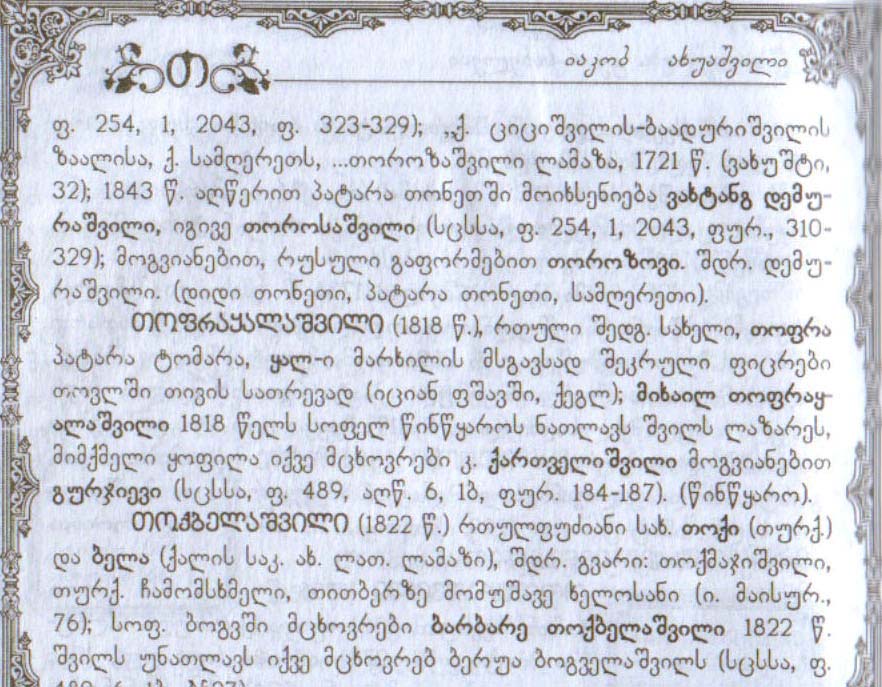 თ
იაკობ ახუაშვილი
ფ. 254, 1, 2043, ფ. 323-329); „ქ. ციციშვილის-ბაადურიშვილის
ზაალისა, ქ. სამღერეთს, ...თოროზაშვილი ლამაზა, 1721 წ. (ვახუშტი,
32); 1843 წ. აღწერით პატარა თონეთში მოიხსენიება ვახტანგ დემუ-
რაშვილი, იგივე თოროსაშვილი (სცსსა, ფ. 254, 1, 2043, ფურ., 310-
329); მოგვიანებით, რუსული გაფორმებით თოროზოვი. შდრ. დემუ-
რაშვილი. (დიდი თონეთი, პატარა თონეთი, სამღერეთი).
ᲗᲝᲤᲠᲐᲧᲐᲚᲐᲨᲕᲘᲚᲘ (1818 წ.), რთული შედგ. სახელი, თოფრა
პატარა ტომარა, ყალ-ი მარხილის მსგავსად შეკრული ფიცრები
თოვლში თივის სათრევად (იციან ფშავში, ქეგლ); მიხაილ თოფრაყ-
ალაშვილი 1818 წელს სოფელ წინწყაროს ნათლავს შვილს ლაზარეს,
მიმქმელი ყოფილა იქვე მცხოვრები კ. ქართველიშვილი მოგვიანებით
გურჯიევი (სცსსა, ფ. 489, აღწ. 6, 1ბ, ფურ. 184-187). (წინწყარო).
ᲗᲝᲥᲑᲔᲚᲐᲨᲕᲘᲚᲘ (1822 წ.) რთულფუძიანი სახ. თოქი (თურქ.)
და ბელა (ქალის საკ. ახ. ლათ. ლამაზი), შდრ. გვარი: თოქმაჯიშვილი,
თურქ. ჩამომსხმელი, თითბერზე მომუშავე ხელოსანი (ი. მაისურ.,
76); სოფ. ბოგვში მცხოვრები ბარბარე თოქბელაშვილი 1822 წ.
შვილს უნათლავს იქვე მცხოვრებ ბერუა ბოგველაშვილს (სცსსა, ფ.